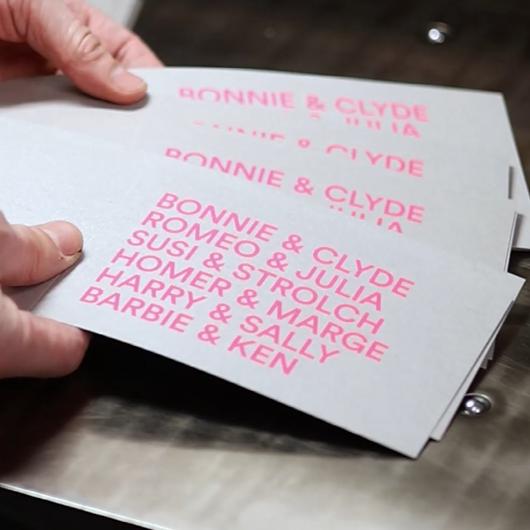 BONNIE & CLYDE
JULIA
BONNIE & CLYDE
BONNIE & CLYDE
JULIA
BONNIE & CLYDE
ROMEO & JULIA
SUSI & STROLCH
HOMER & MARGE
HARRY & SALLY
BARBIE & KEN